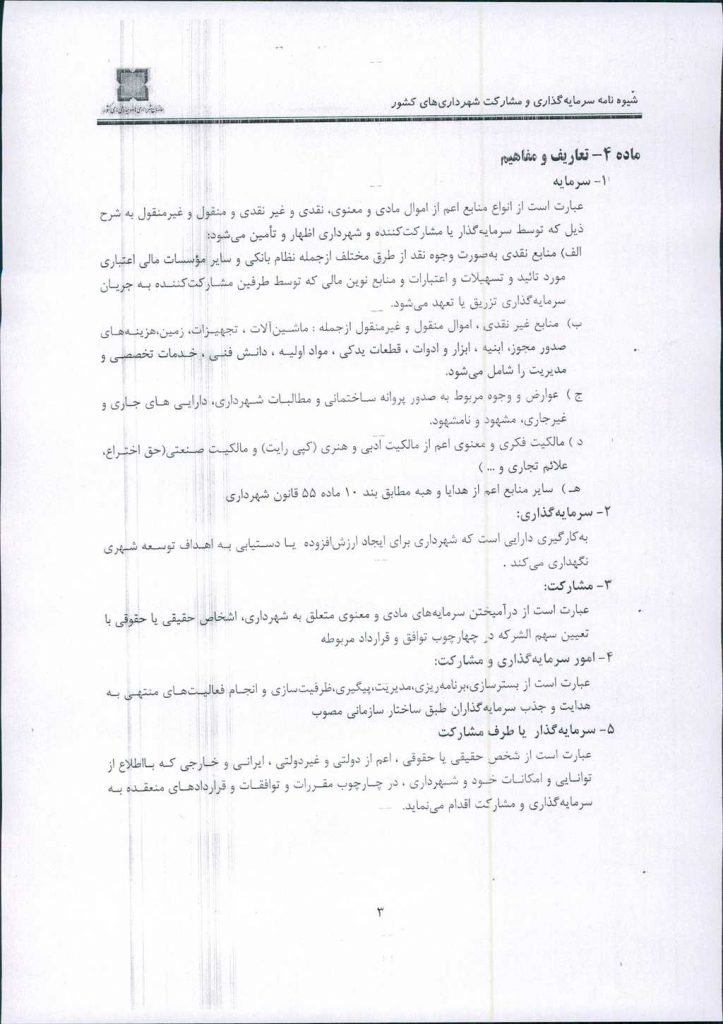 شیوه نامه سرمایه‌گذاری و مشارکت شهرداری‌های کشور
ماده ۴- تعاریف و مفاهیم
۱- سرمایه
عبارت است از انواع منابع اعم از اموال مادی و معنوی، نقدی و غیر نقدی و منقول و غیرمنقول به شرح
ذیل که توسط سرمایه‌گذار یا مشارکت‌کننده و شهرداری اظهار و تأمین می‌شود:
الف) منابع نقدی به‌صورت وجوه نقد از طرق مختلف ازجمله نظام بانکی و سایر مؤسسات مالی اعتباری
مورد تائید و تسهیلات و اعتبارات و منابع نوین مالی که توسط طرفین مشارکت‌کننده به جریان
سرمایه‌گذاری تزریق یا تعهد می‌شود.
ب) منابع غیر نقدی ، اموال منقول و غیرمنقول ازجمله : ماشین‌آلات ، تجهیزات، زمین،هزینه‌های
صدور مجوز، ابنیه ، ابزار و ادوات ، قطعات یدکی ، مواد اولیه ، دانش فنی ، خدمات تخصصی و
مدیریت را شامل می‌شود.
ج ) عوارض و وجوه مربوط به صدور پروانه ساختمانی و مطالبات شهرداری، دارایی های جاری و
غیرجاری، مشهود و نامشهود.
د ) مالکیت فکری و معنوی اعم از مالکیت ادبی و هنری (کپی رایت) و مالکیت صنعتی(حق اختراع،
علائم تجاری و ... )
هـ ) سایر منابع اعم از هدایا و هبه مطابق بند ۱۰ ماده ۵۵ قانون شهرداری
۲- سرمایه‌گذاری:
به‌کارگیری دارایی است که شهرداری برای ایجاد ارزش‌افزوده یا دستیابی به اهداف توسعه شهری
نگهداری می‌کند .
۳- مشارکت:
عبارت است از درآمیختن سرمایه‌های مادی و معنوی متعلق به شهرداری، اشخاص حقیقی یا حقوقی با
تعیین سهم الشرکه در چهارچوب توافق و قرارداد مربوطه
۴- امور سرمایه‌گذاری و مشارکت:
عبارت است از بسترسازی،برنامه‌ریزی،مدیریت،پیگیری،ظرفیت‌سازی و انجام فعالیت‌های منتهی به
هدایت و جذب سرمایه‌گذاران طبق ساختار سازمانی مصوب
۵- سرمایه‌گذار یا طرف مشارکت
عبارت است از شخص حقیقی یا حقوقی ، اعم از دولتی و غیردولتی ، ایرانی و خارجی که بااطلاع از
توانایی و امکانات خود و شهرداری ، در چارچوب مقررات و توافقات و قراردادهای منعقده به
سرمایه‌گذاری و مشارکت اقدام می‌نماید.
۳